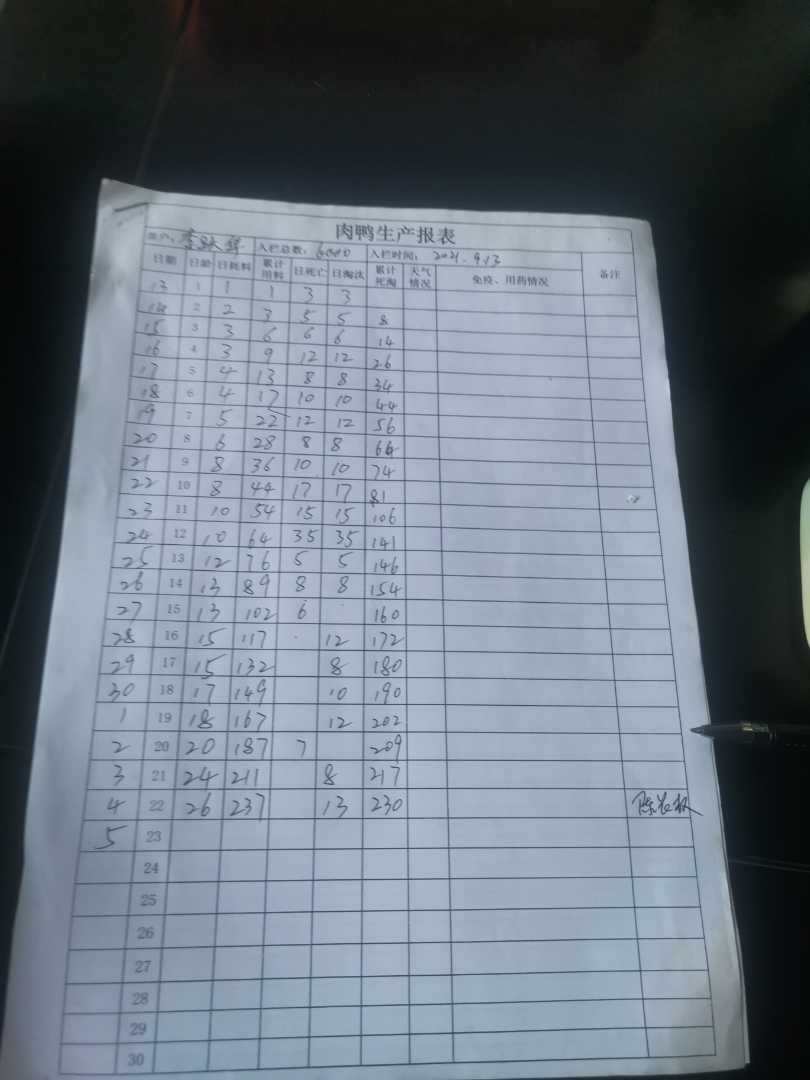 肉鸭生产报表
入栏总数: 6000 入栏时间: 2021.9.13
日期 日龄 日耗料 累计用料 日死亡 日淘汰 累计死淘 天气情况 免疫、用药情况 备注
13 1 1 1 3 3
14 2 2 3 5 5 8
15 3 3 6 6 6 14
16 4 3 9 12 12 26
17 5 4 13 8 8 34
18 6 4 17 10 10 44
19 7 5 22 12 12 56
20 8 6 28 8 8 64
21 9 8 36 10 10 74
22 10 8 44 17 17 81
23 11 10 54 15 15 106
24 12 10 64 35 35 141
25 13 12 76 5 5 146
26 14 13 89 8 8 154
27 15 13 102 6 160
28 16 15 117 12 172
29 17 15 132 8 180
30 18 17 149 10 190
1 19 18 167 12 202
2 20 20 187 7 209
3 21 24 211 8 217
4 22 26 237 13 230
5 23
24
25
26
27
28
29
30